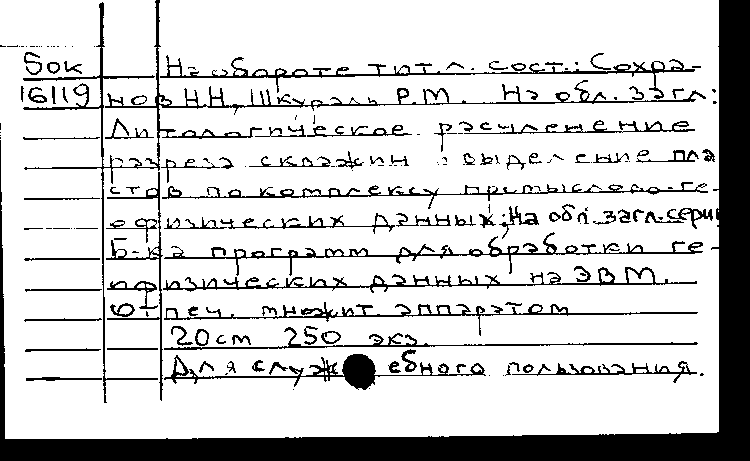 Sок На обороте тит. л. сост.: Сохра-
16119 нов Н.Н., Шкураль Р.М. На обл. загл:
Литологическое расчленение
разреза скважин : выделение пла
стов по комплексу промыслово-ге-
офизических данных; На обл. загл. серии
Б-ка программ для обработки ге-
офизических данных на ЭВМ.
Отпеч. множит. аппаратом
20 см 250 экз.
Для служебного пользования.